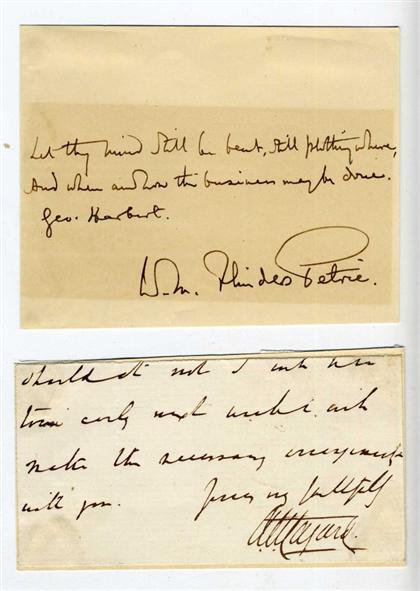 Let thy mind still be bent, still plotting where,
And when and how the business may be done.
Geo. Herbert.
W. M. Flinders Petrie.
should it not I will be in
town early next week & will
make the necessary arrangements
with you. Yours very faithfully
A. H. Layard.